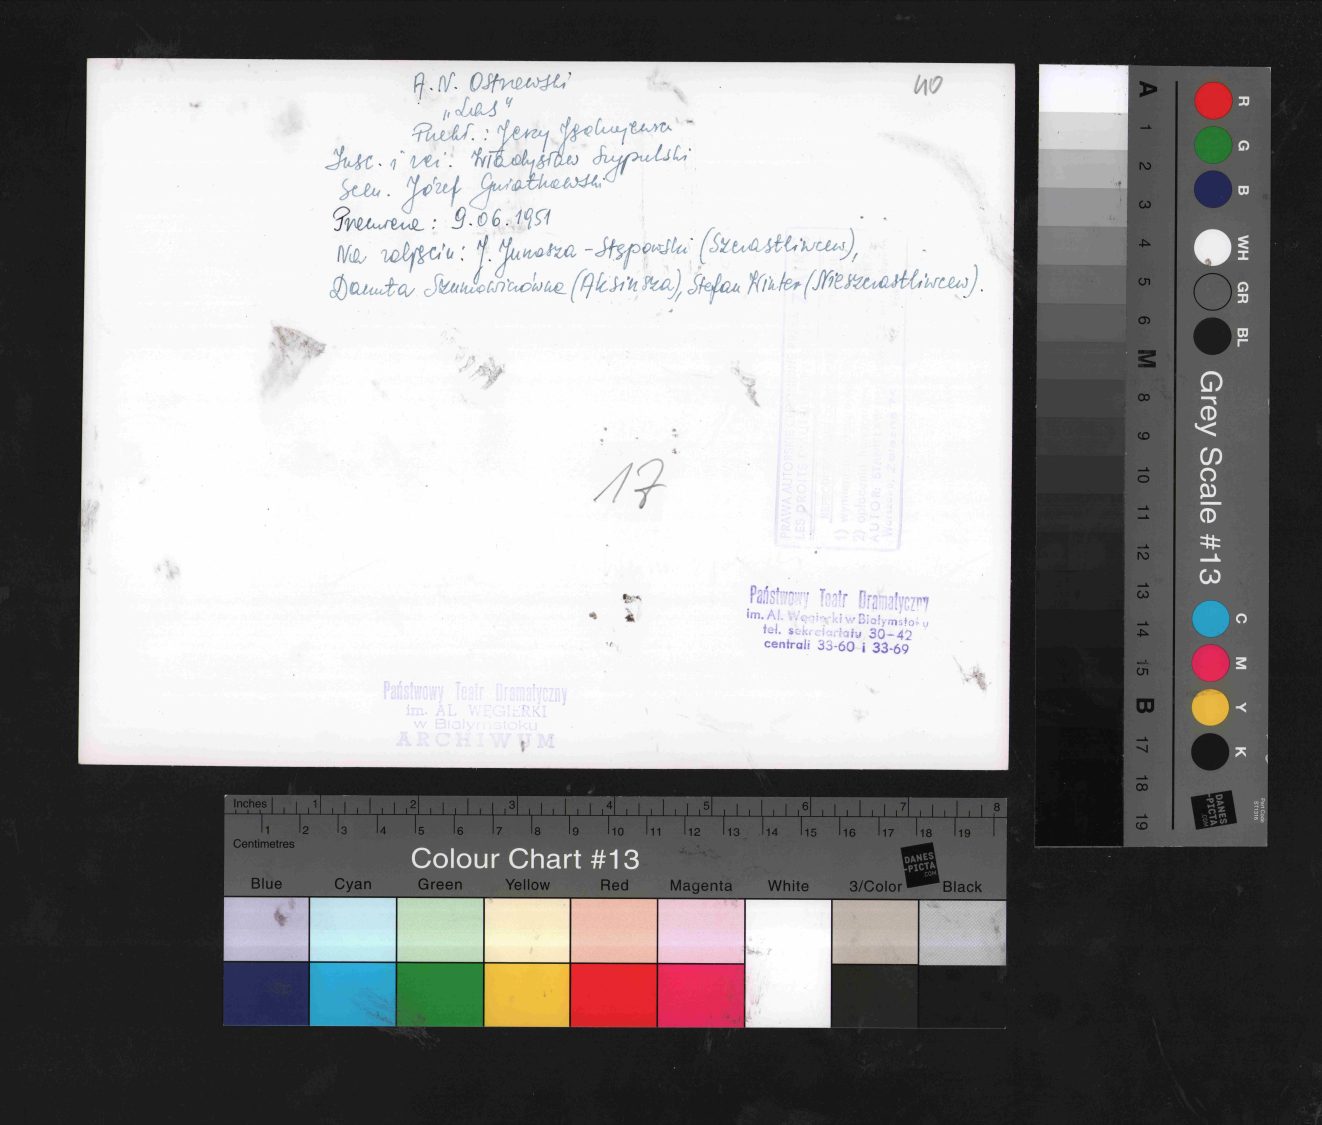 A. N. Ostrowski
"Las"
Przekł.: Jerzy
Insc. i reż. Władysław Szypulski
Scen. Józef Gwiatkowski
Premiera: 9.06.1951
Na zdjęciu: J. Junosza-Stępowski (Szczastliwcew),
Danuta (Aksinsza), Stefan Winter (Nieszczastliwcew).
40
17
PRAWA AUTORSKIE
LES DROITS
1)
2)
AUTOR:
Państwowy Teatr Dramatyczny
im. Al. Węgierki w Białymstoku
tel. sekretariatu 30-42
centrali 33-60 i 33-69
Państwowy Teatr Dramatyczny
im. AL WĘGIERKI
w Białymstoku
ARCHIWUM
A 1 2 3 4 5 6 M 8 9 10 11 12 13 14 15 B 17 18 19
R G B WH GR BL
Grey Scale #13
C M Y K
DANES
-PICTA
.COM
Part Code
ST1316
Inches 1 2 3 4 5 6 7 8
1 2 3 4 5 6 7 8 9 10 11 12 13 14 15 16 17 18 19
Centimetres
Colour Chart #13
DANES
-PICTA
.COM
Blue Cyan Green Yellow Red Magenta White 3/Color Black